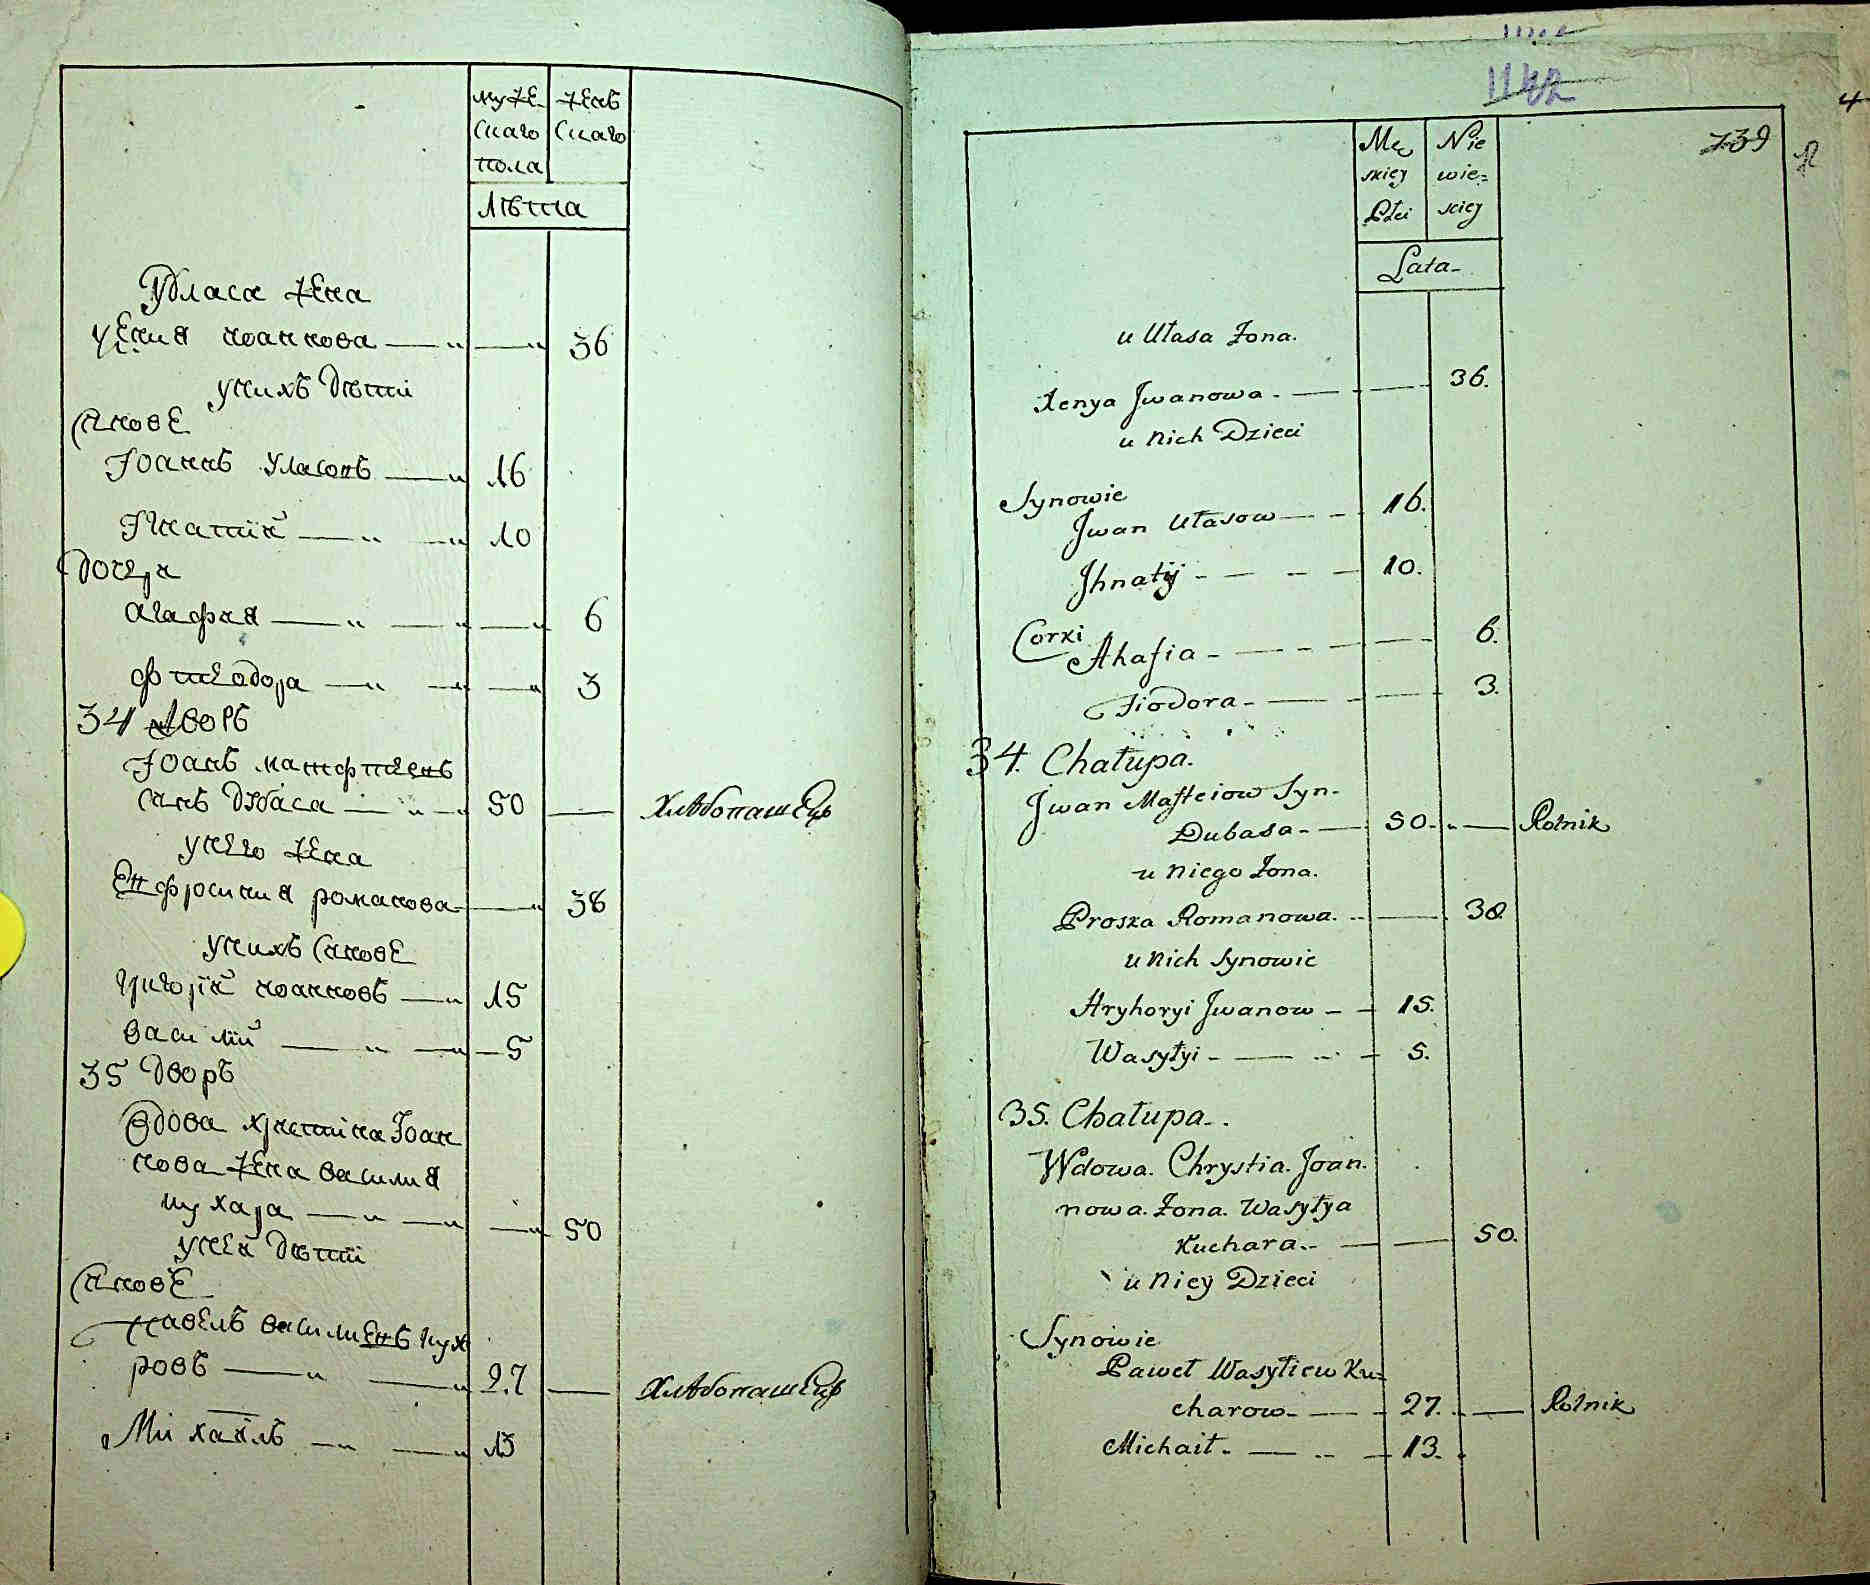 муже
скаго
пола
женъ
скаго
лѣта
Уӯласа жена
уксения иоаннова — " — " 36
унихъ дѣти
Сынове
Іоаннъ уласовъ — " 16
Игнатій — " — " 10
дочеря
агафия — " — " — " 6
фтеодора — " — " — " 3
34 дворъ
Іоанъ матфтиевъ
синъ дубаса — " — 50 — Хлѣбопашецъ
унего жена
Евфросиния романова — " 38
унихъ Сынове
григорій иоанновъ — " 15
василій — " — " — 5
35 дворъ
Вдова христина Іоан
нова жена василия
кухара — " — " — " 50
уней дѣти
Сынове
павелъ василиевъ кух
ровъ — " — " 27 — Хлѣбопашецъ
Михаилъ — " — " 13
1142
739
Mę
skiey
Płci
Nie
wie=
sciey
Lata-
u Ułasa Żona.
Xenya Jwanowa. — — 36.
u nich Dzieci
Synowie
Jwan Ułasow — - 16.
Jhnatij - — - — 10.
Corki
Ahafia - — - - — 6.
Fiodora - — - — 3.
34. Chałupa.
Jwan Mafteiow Syn-
Dubasa. — 50. - — Rolnik
u niego Żona.
Proska Romanowa. - — 38
u nich Synowie
Hryhoryi Jwanow - - 15.
Wasyłyi - — - - 5.
35. Chałupa..
Wdowa. Chrystia. Joan.
nowa. Żona. Wasyłya
Kuchara.. — — 50.
u niey Dzieci
Synowie
Paweł Wasyliew Ku=
charow. — - 27. - — Rolnik
Michaił. — - - 13.